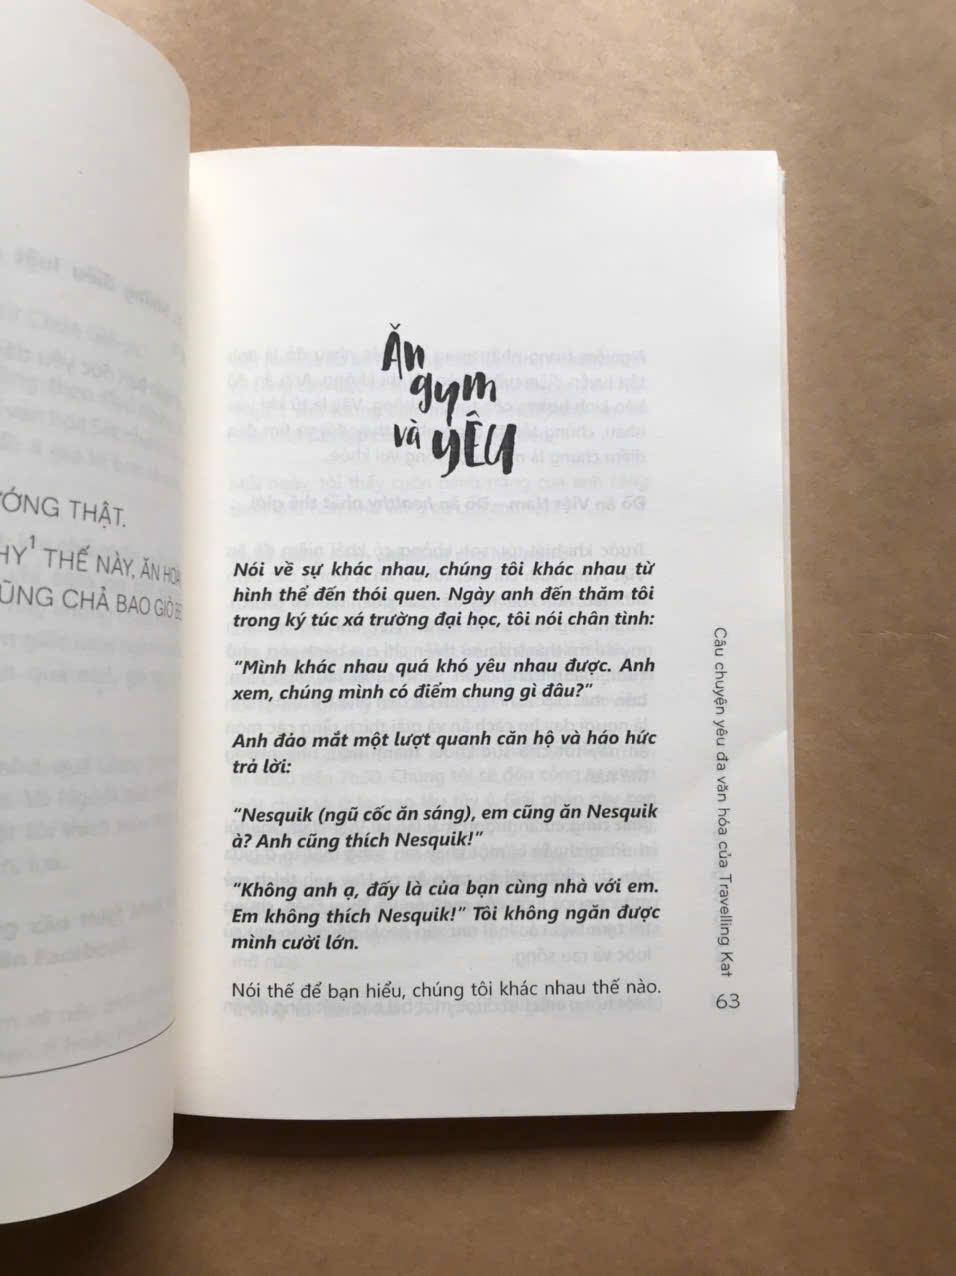 ƯỚNG THẬT.
HY¹ THẾ NÀY, ĂN HOA
ŨNG CHẢ BAO GIỜ BÉ
Ăn
gym
và YÊU
Nói về sự khác nhau, chúng tôi khác nhau từ
hình thể đến thói quen. Ngày anh đến thăm tôi
trong ký túc xá trường đại học, tôi nói chân tình:
“Mình khác nhau quá khó yêu nhau được. Anh
xem, chúng mình có điểm chung gì đâu?”
Anh đảo mắt một lượt quanh căn hộ và háo hức
trả lời:
“Nesquik (ngũ cốc ăn sáng), em cũng ăn Nesquik
à? Anh cũng thích Nesquik!”
“Không anh ạ, đấy là của bạn cùng nhà với em.
Em không thích Nesquik!” Tôi không ngăn được
mình cười lớn.
Nói thế để bạn hiểu, chúng tôi khác nhau thế nào.
Câu chuyện yêu đa văn hóa của Travelling Kat
63